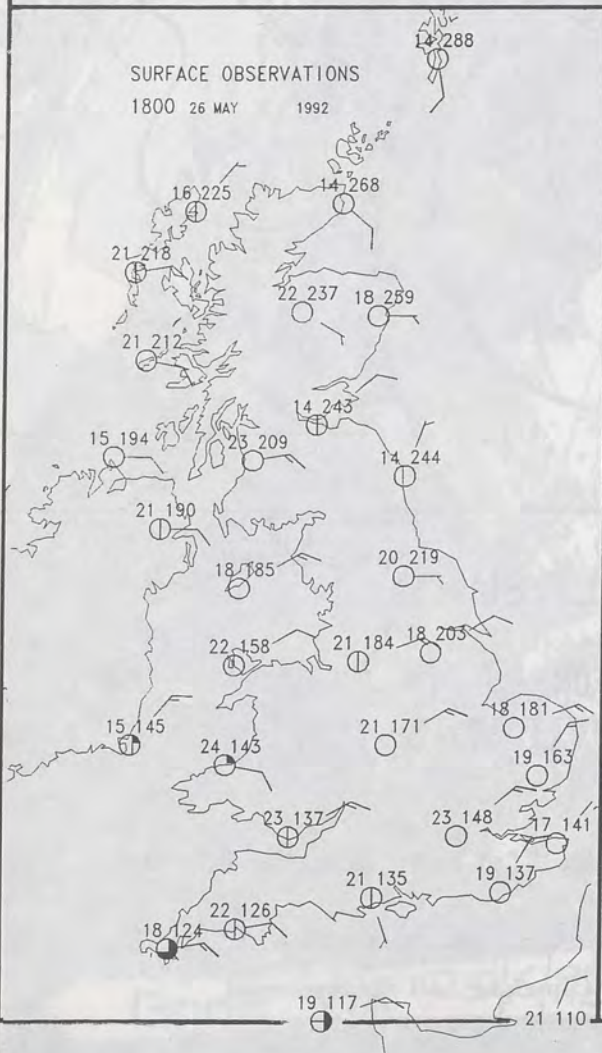 14 288
SURFACE OBSERVATIONS
1800 26 MAY 1992
16 225
14 268
21 218
22 237
18 259
21 212
14 243
15 194
23 209
14 244
21 190
18 185
20 219
22 158
21 184
18 203
15 145
21 171
18 181
24 143
19 163
23 137
23 148
17 141
21 135
19 137
18 124
22 126
19 117
21 110